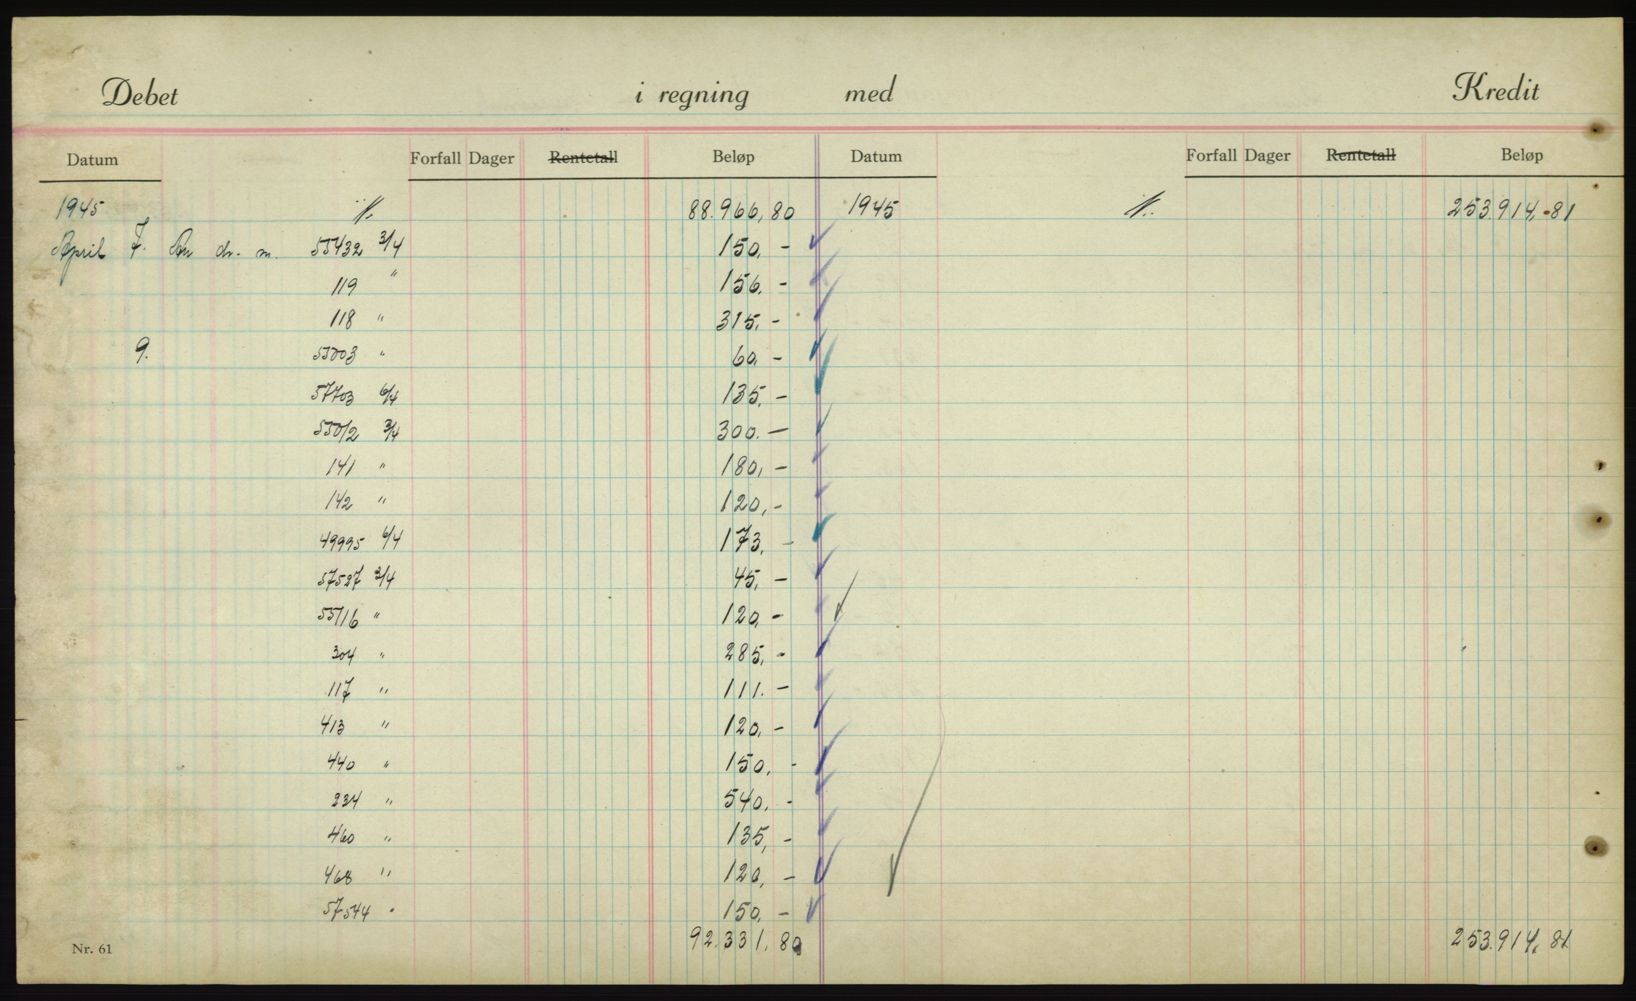 Debet i regning med Kredit
Datum Forfall Dager Rentetall Beløp Datum Forfall Dager Rentetall Beløp
1945 88.966,80 1945 253.914,81
April 7. An dr. m. 55432 3/4 150,-
119 " 156,-
118 " 315,-
9. 55003 " 60,-
57703 6/4 135,-
55012 3/4 300.-
141 " 180,-
142 " 120,-
49995 6/4 173,-
57527 3/4 45,-
55116 " 120,-
304 " 285,-
117 " 111.-
413 " 120,-
440 " 150,-
234 " 540,-
460 " 135,-
468 " 120,-
57544 " 150,-
92.331,80 253.914,81
Nr. 61